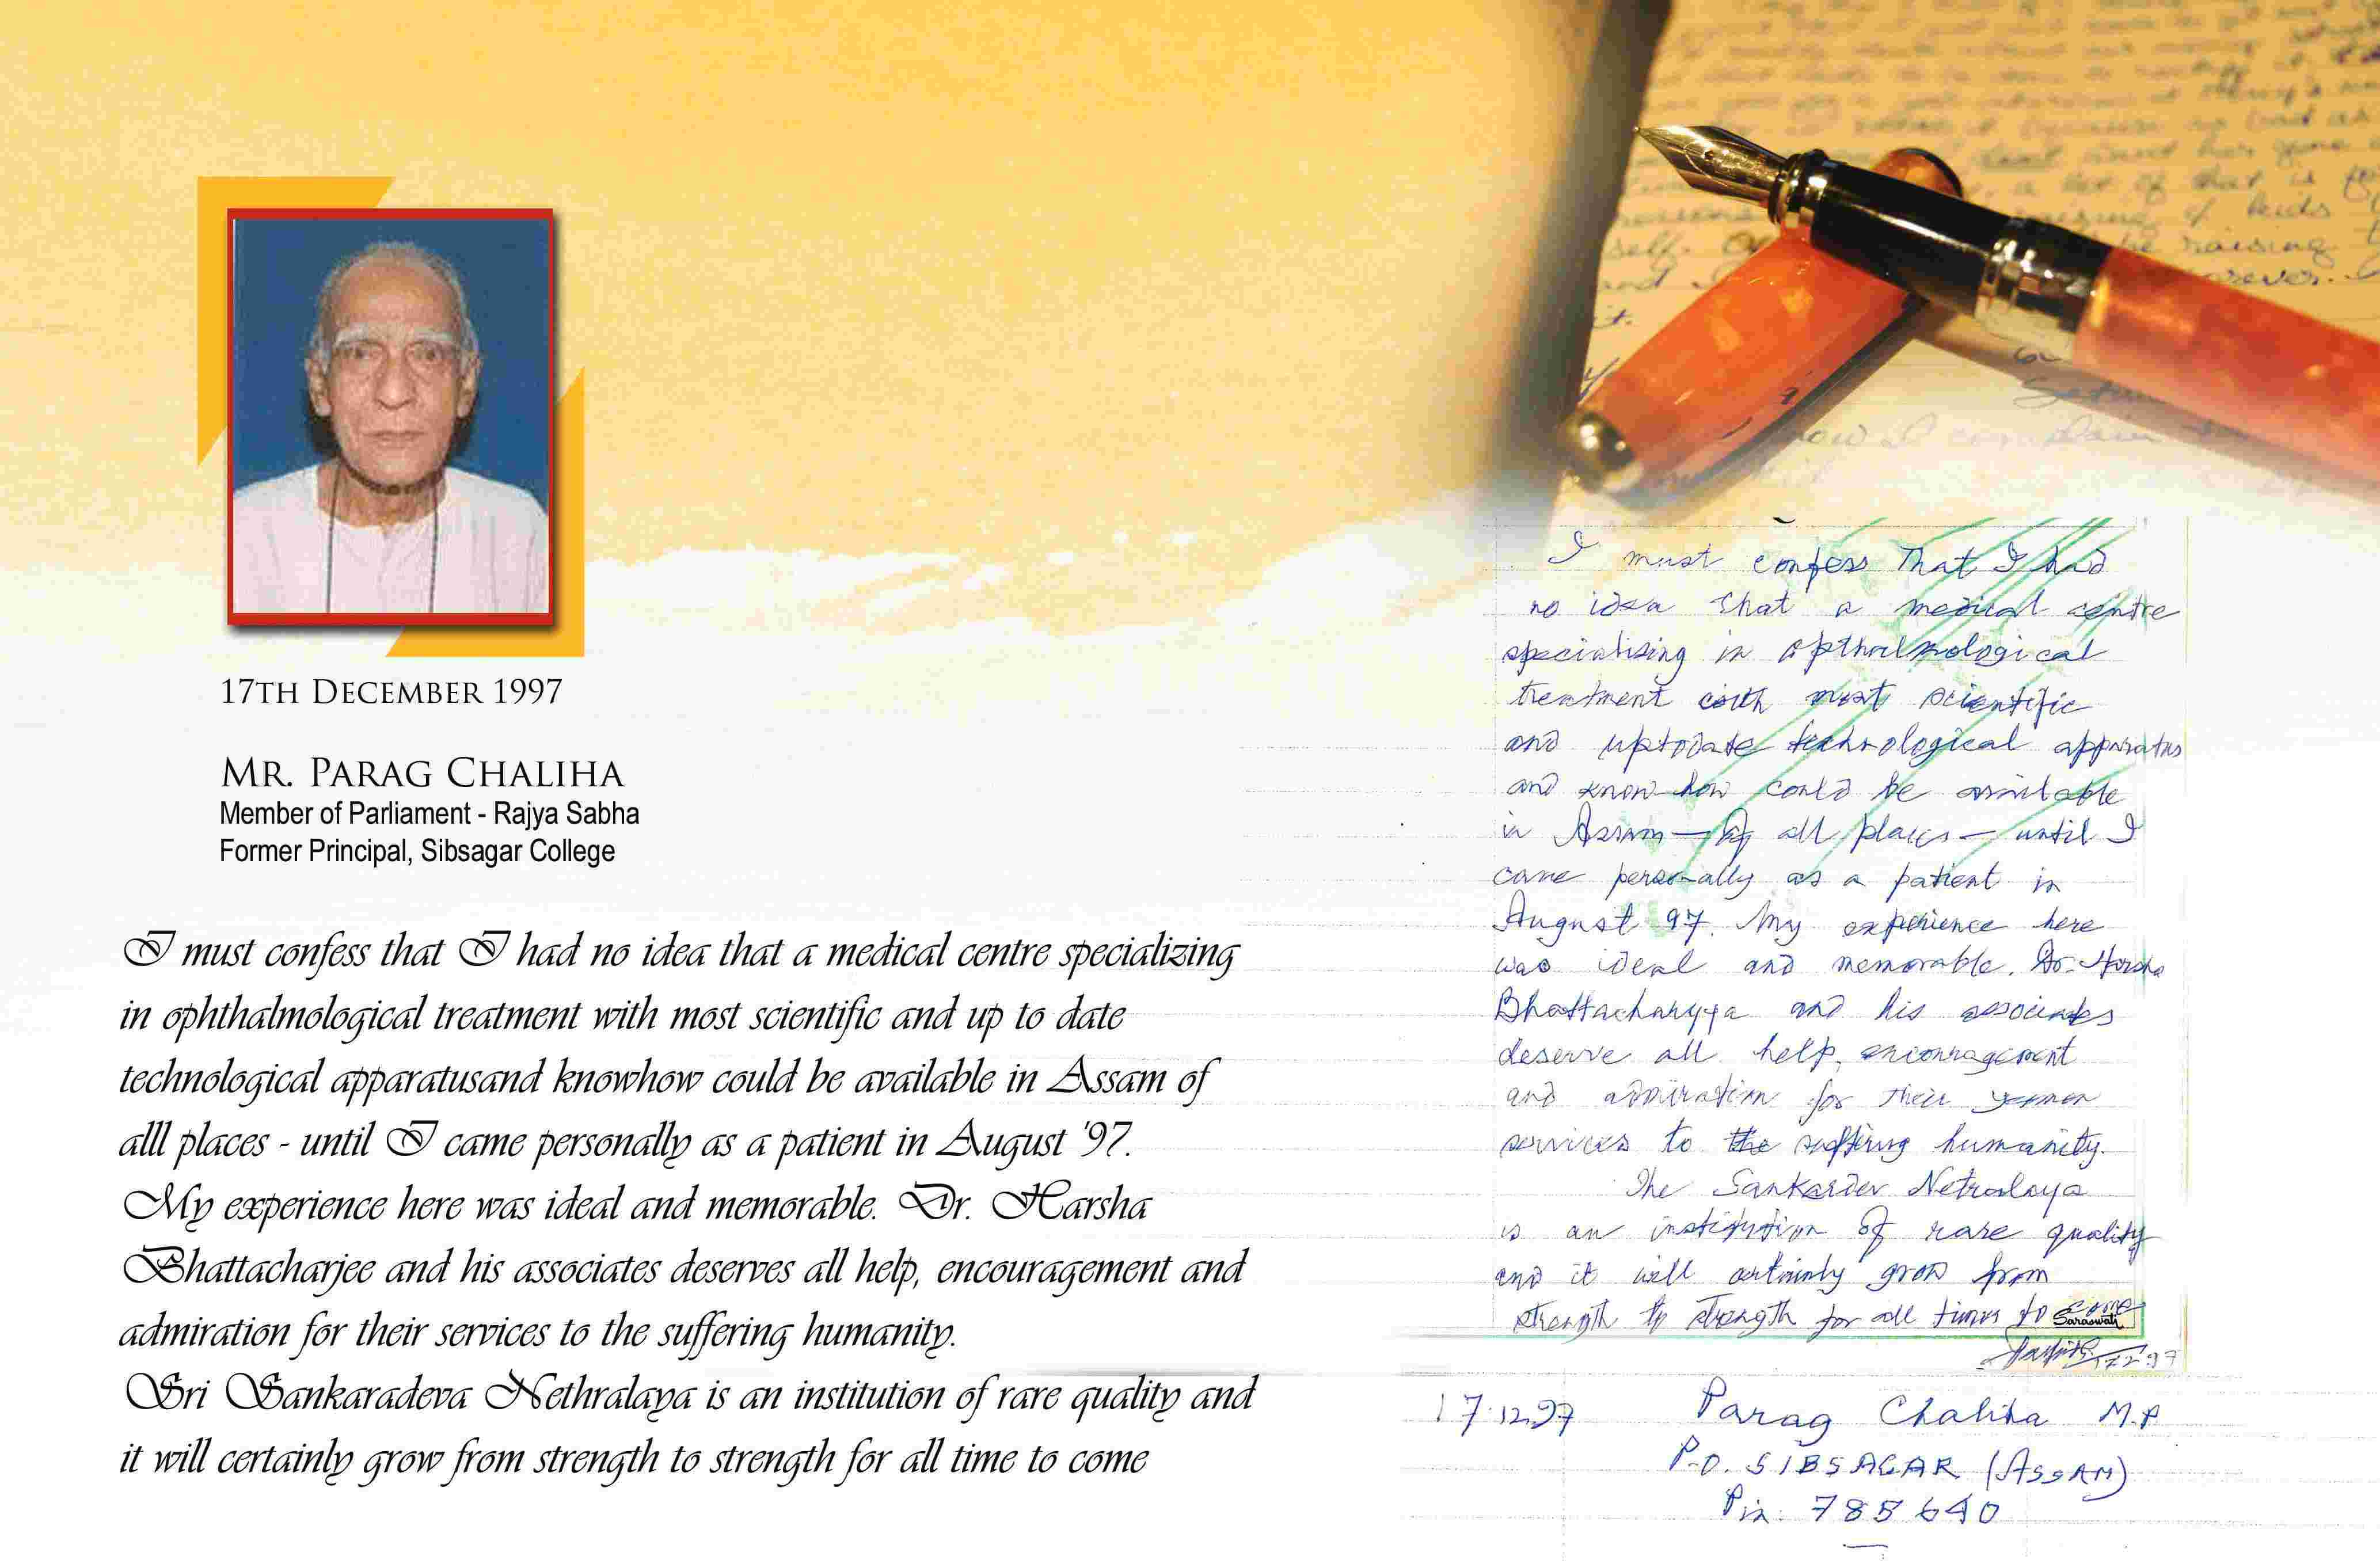 17TH DECEMBER 1997
MR. PARAG CHALIHA
Member of Parliament - Rajya Sabha
Former Principal, Sibsagar College
I must confess that I had no idea that a medical centre specializing
in ophthalmological treatment with most scientific and up to date
technological apparatusand knowhow could be available in Assam of
alll places - until I came personally as a patient in August '97.
My experience here was ideal and memorable. Dr. Harsha
Bhattacharjee and his associates deserves all help, encouragement and
admiration for their services to the suffering humanity.
Sri Sankaradeva Nethralaya is an institution of rare quality and
it will certainly grow from strength to strength for all time to come
I must confess that I had
no idea that a medical centre
specialising in opthalmological
treatment with most scientific
and uptodate technological apparatus
and know-how could be available
in Assam - of all places - until I
came personally as a patient in
August 97. My experience here
was ideal and memorable. Dr. Harsha
Bhattacharyya and his associates
deserve all help, encouragement
and admiration for their yeomen
services to the suffering humanity.
The Sankardev Netralaya
is an institution of rare quality
and it will certainly grow from
strength to strength for all times to come
Saraswati
17.12.97
Parag Chaliha M.P
P.O. SIBSAGAR (ASSAM)
Pin. 785640